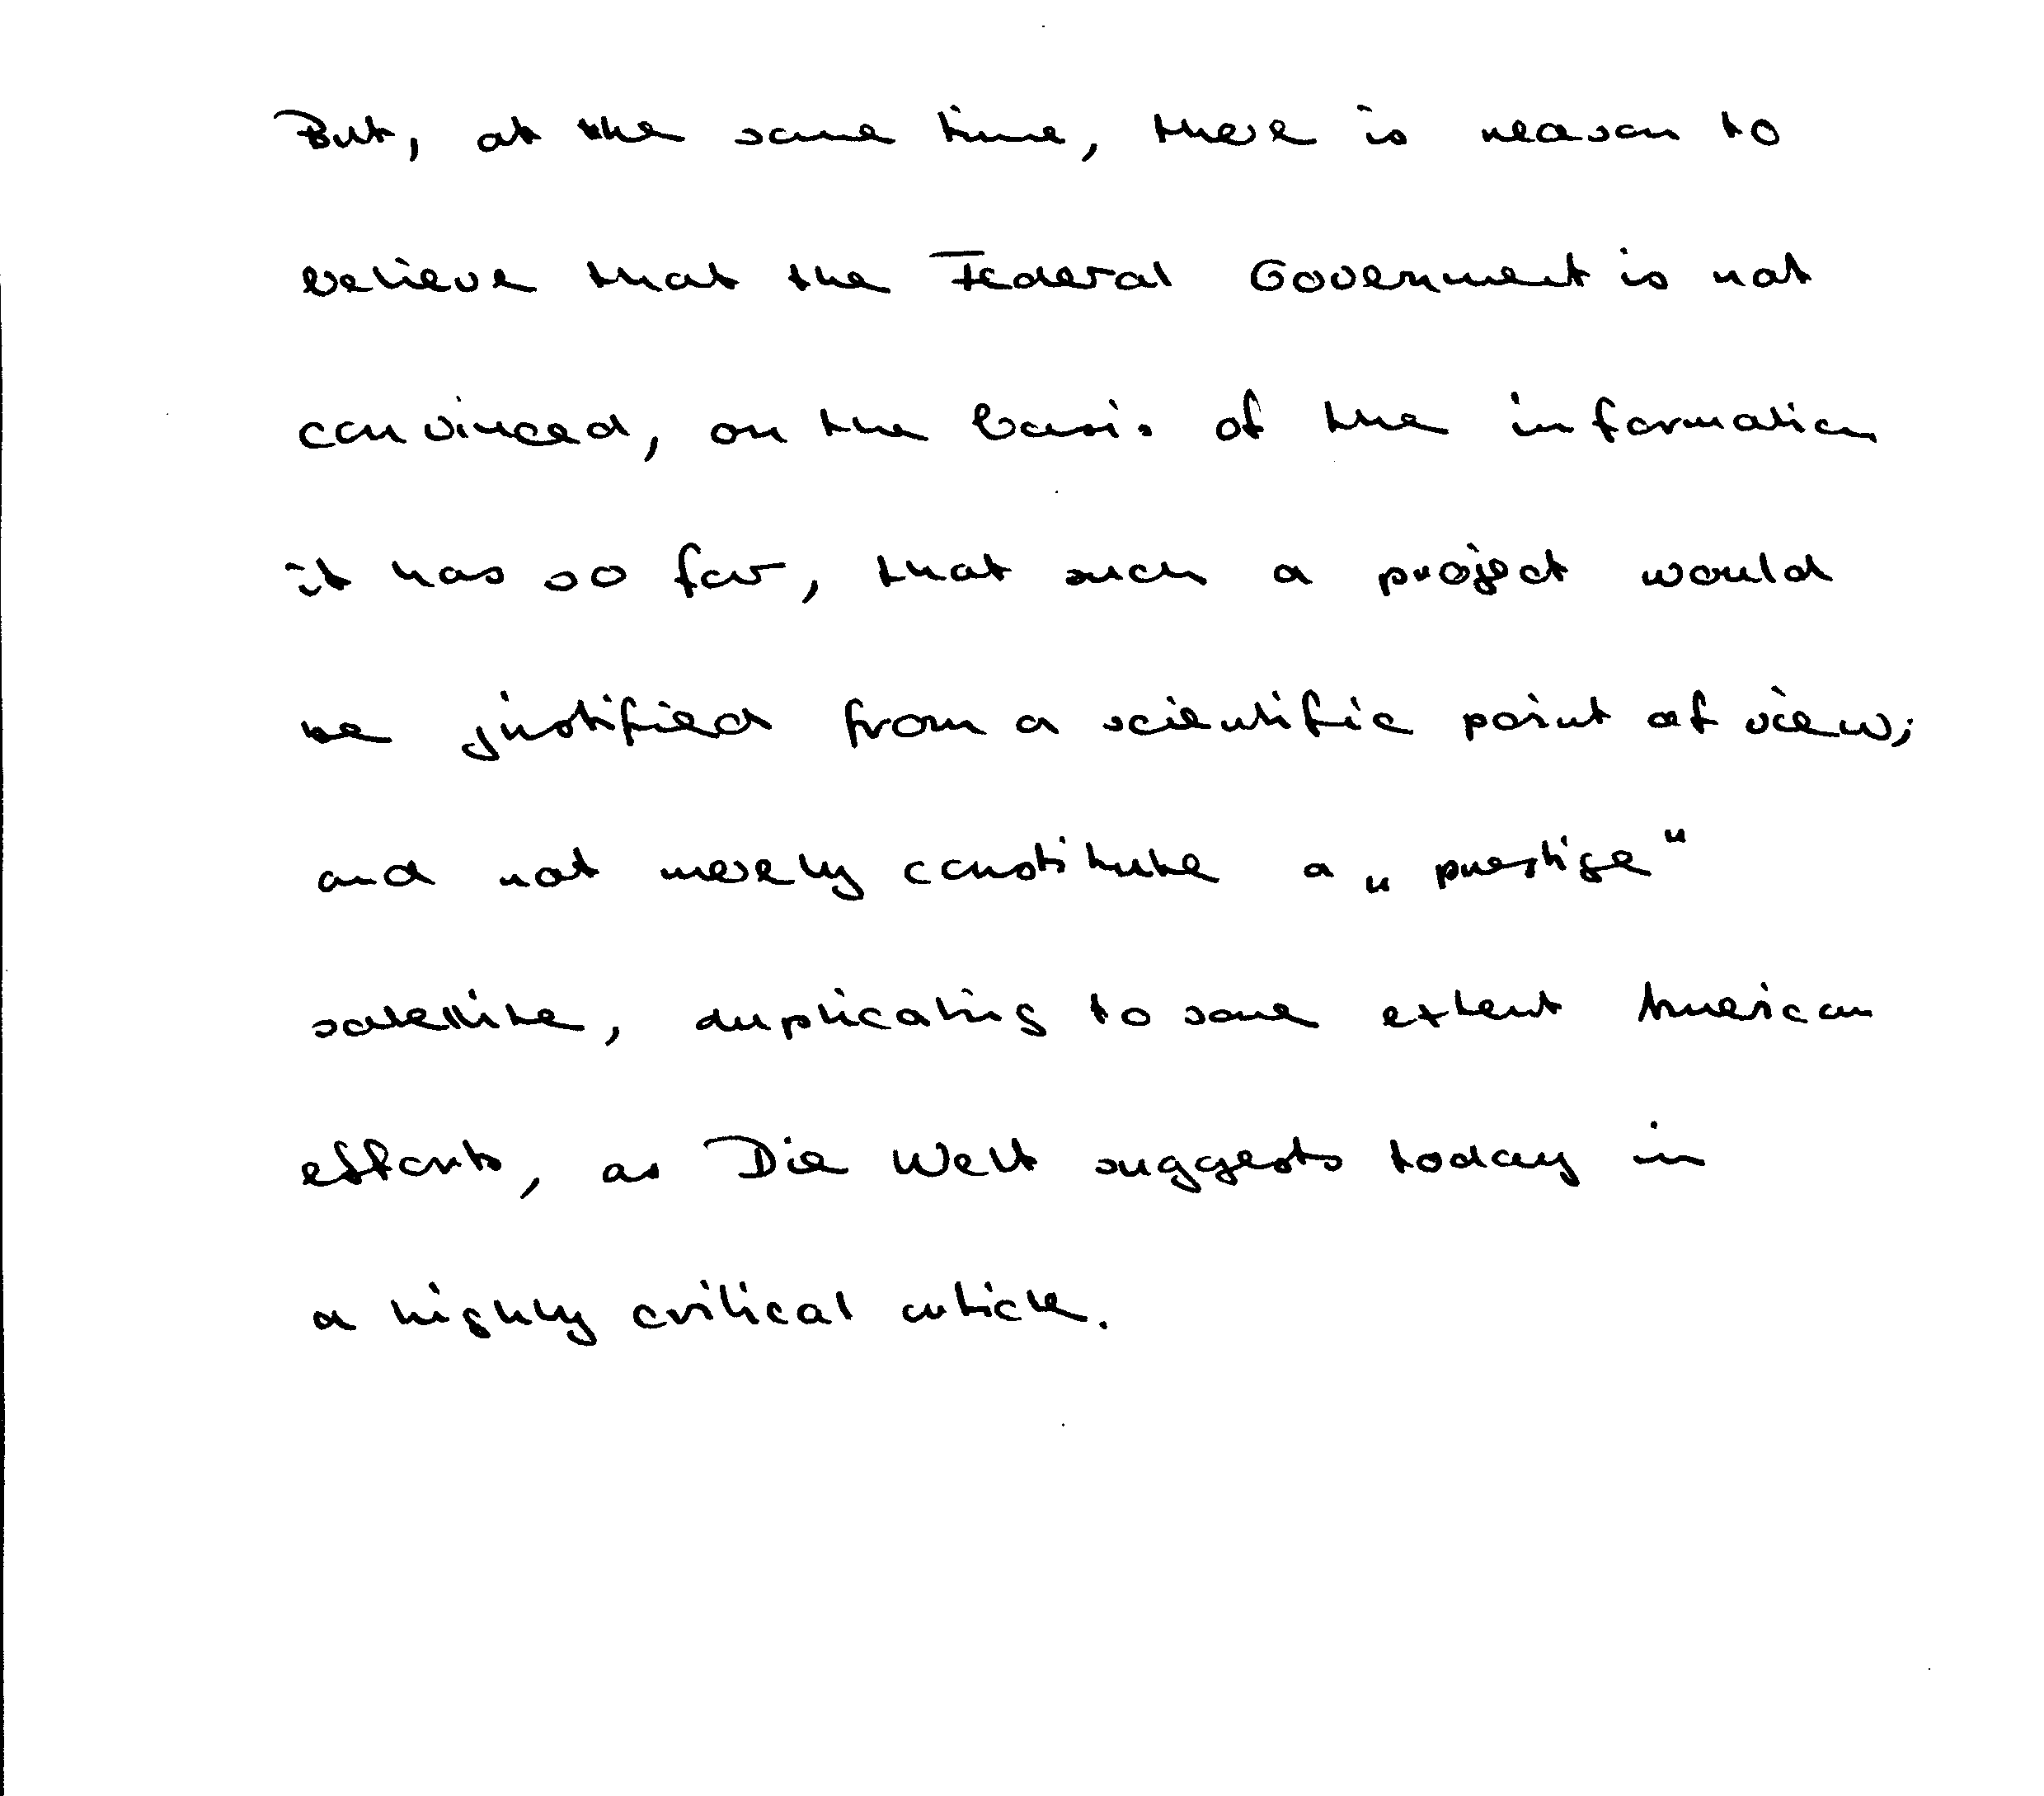 But, at the same time, there is reason to
believe that the Federal Government is not
convinced, on the basis of the information
it has so far, that such a project would
be justified from a scientific point of view;
and not merely constitute a „prestige"
satellite, duplicating to some extent American
efforts, as Die Welt suggests today in
a highly critical article.